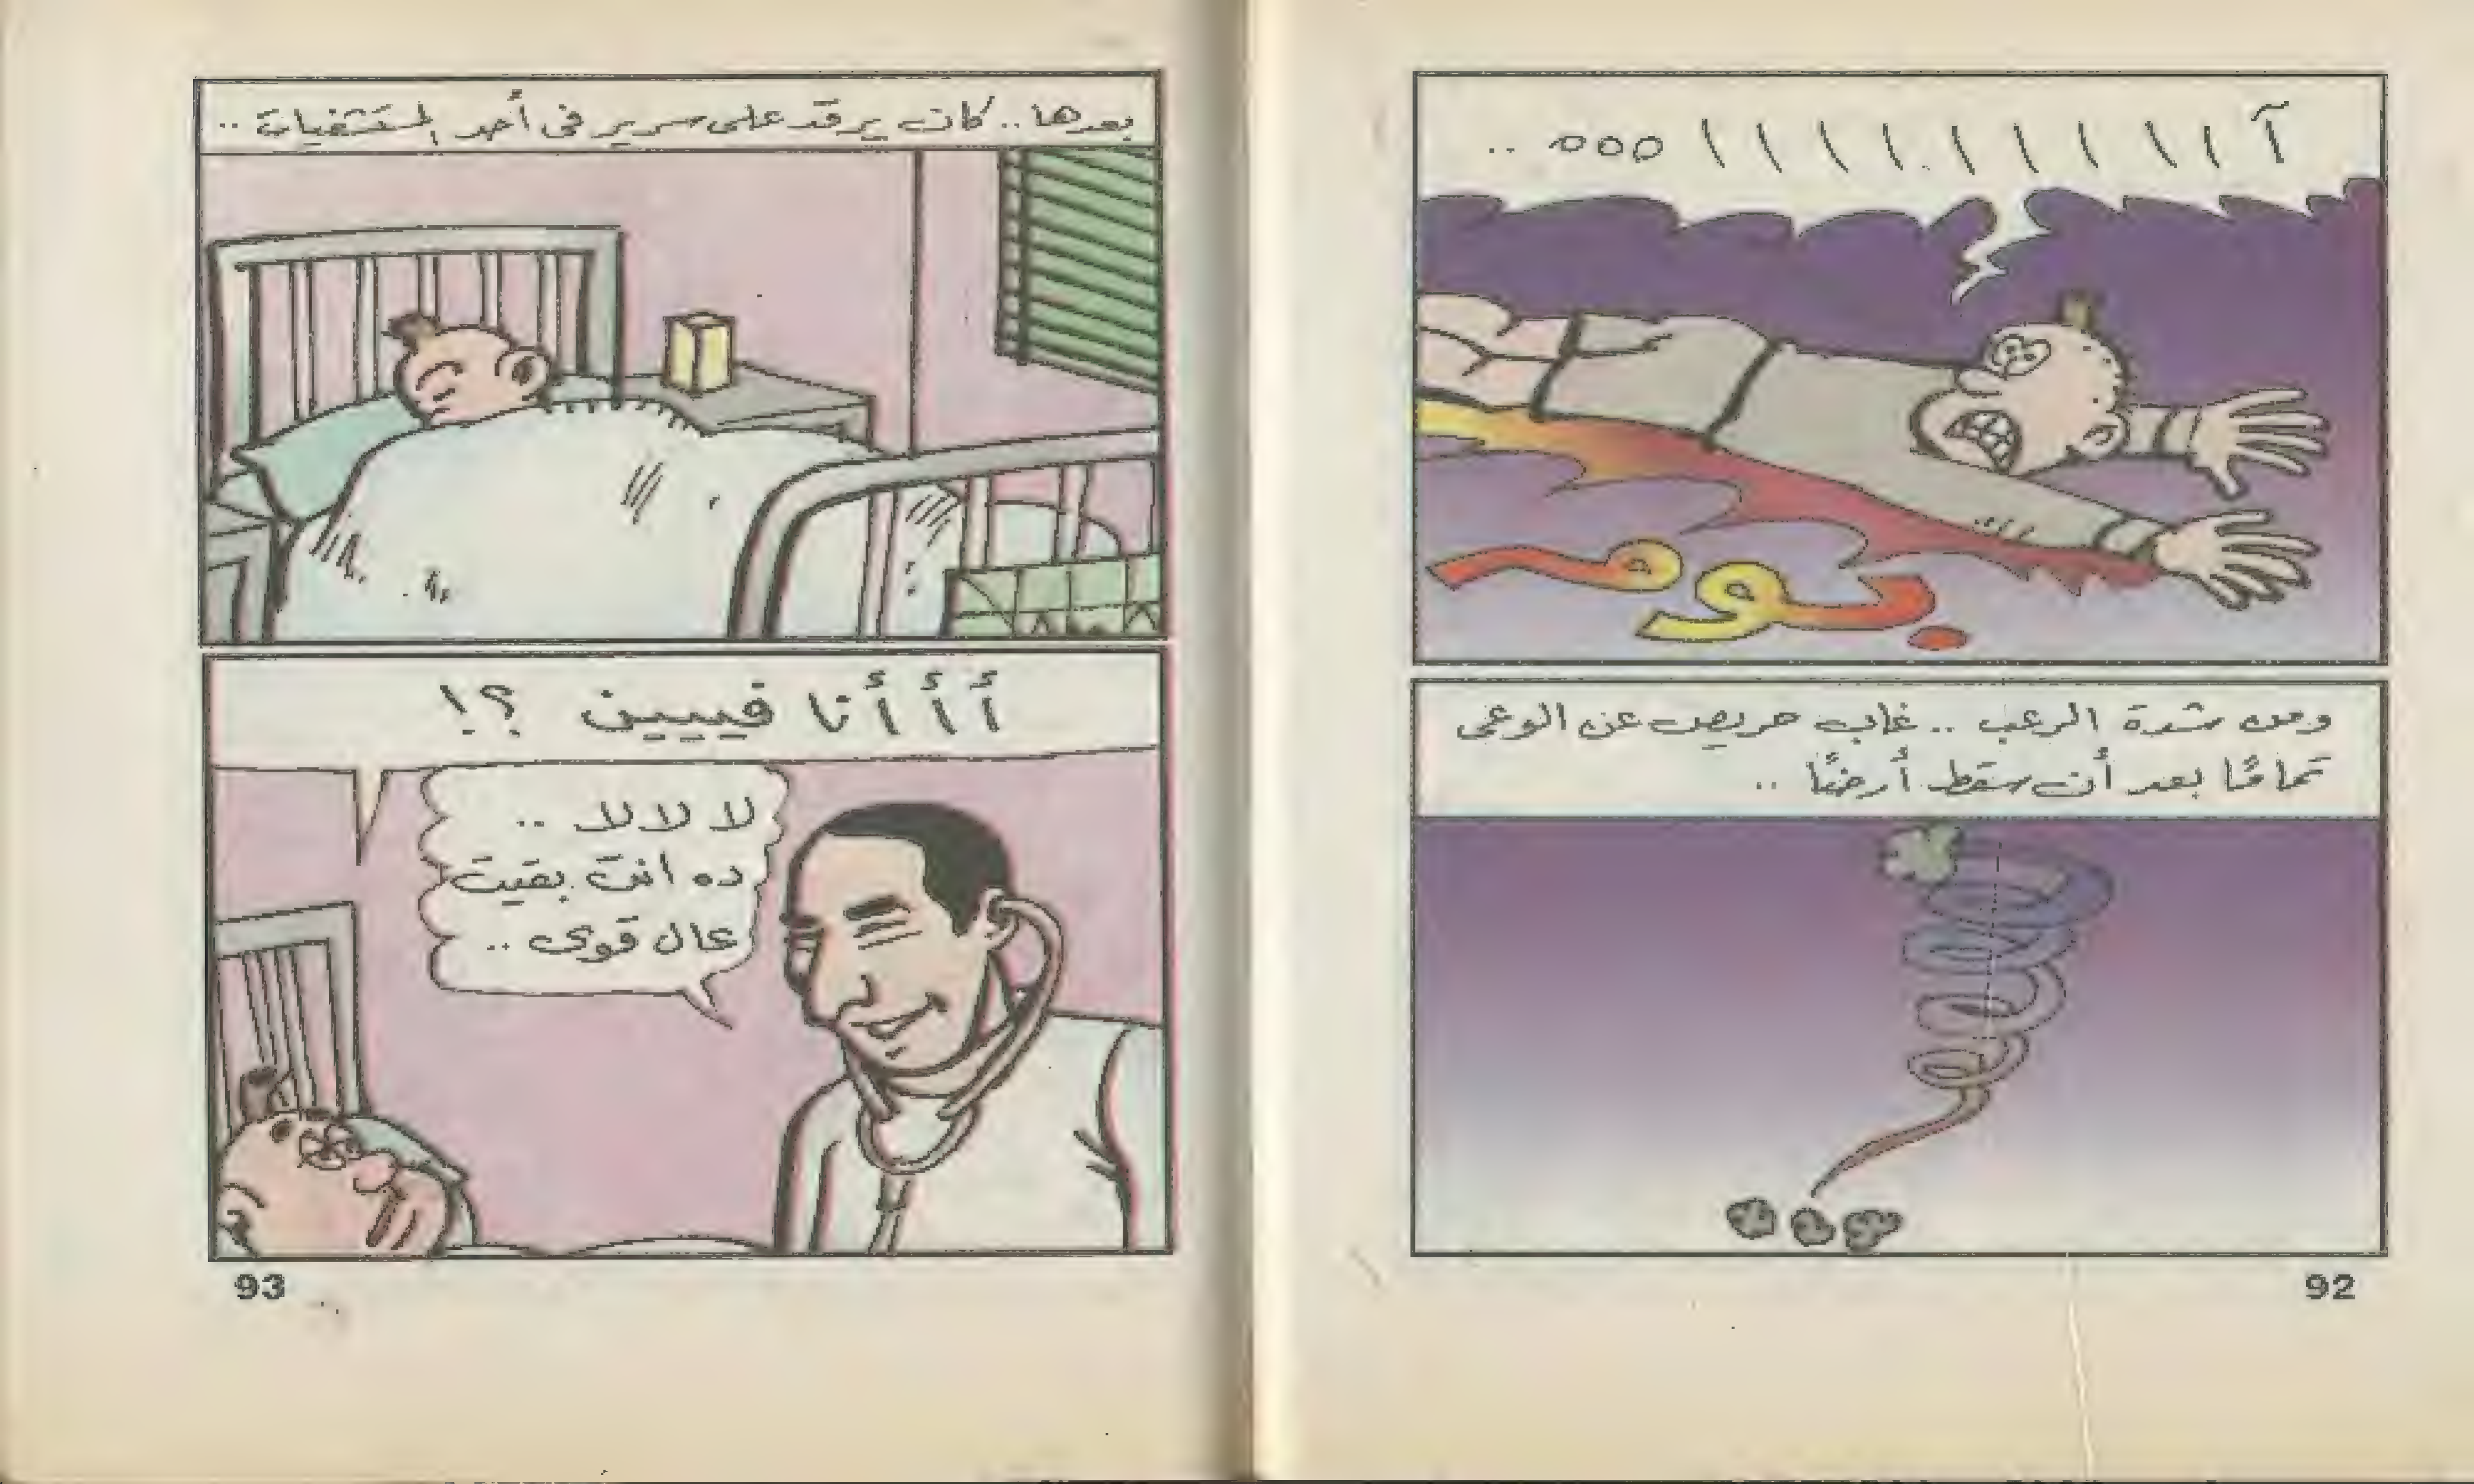 آ ا ا ا ا ا ا ا ا ا ا ه ه ه ..
بوم
ومن شدة الرعب .. غاب حريص عن الوعى
تمامًا بعد أن سقط أرضًا ..
92
بعدها .. كان يرقد على سرير فى أحد المستشفيات ..
أ أ أنا فييين ؟!
لا لا لا ..
ده انت بقيت
عال قوى ..
93